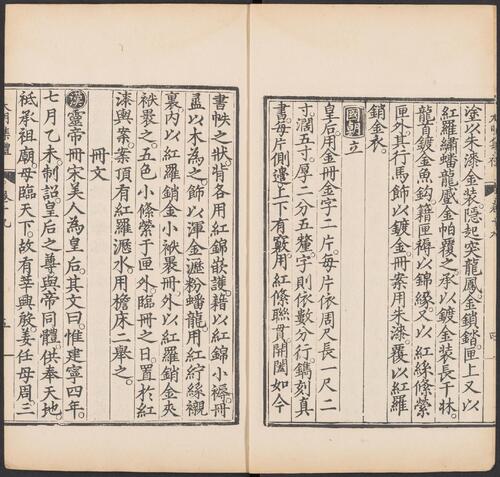 塗以朱漆金裝隱起突龍鳳金鎖鐺匣上又以
紅羅繡蟠龍蹙金帕覆之承以鍍金裝長干牀
龍首鍍金魚鈎籍匣褥以錦緣又以紅絲絛縈
匣外其行馬飾以鍍金冊案用朱漆覆以紅羅
銷金衣
國朝立
皇后用金冊金字二片每片依周尺長一尺二
寸濶五寸厚二分五釐字則依數分行鐫刻真
書每片側邊上下有竅用紅絛聯貫開闔如今
書帙之狀背各用紅錦嵌護籍以紅錦小褥冊
盝以木為之飾以渾金瀝粉蟠龍用紅紵絲襯
裏內以紅羅銷金小袱裹冊外以紅羅銷金夾
袱裹之五色小絛縈于匣外臨冊之日置於紅
漆輿案案頂有紅羅瀝水用檐床二舉之
冊文
漢靈帝冊宋美人為皇后其文曰惟建寧四年
七月乙未制詔皇后之尊與帝同體供奉天地
祗承祖廟母臨天下故有莘興殷姜任母周三
卷十九
五